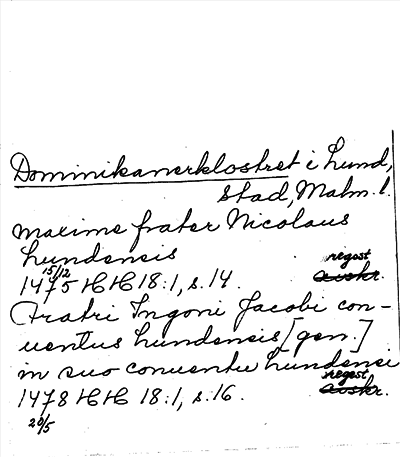 Dominikanerklostret i Lund,
stad, Malm. l.
maxime frater Nicolaus
Lundensis
15/12 regest
1475 HH 18:1, s. 14. avskr.
Fratri Ingoni Jacobi con-
uentus Lundensis [gen.]
in suo conuentu Lundensi
regest
1478 HH 18:1, s. 16. avskr.
20/5